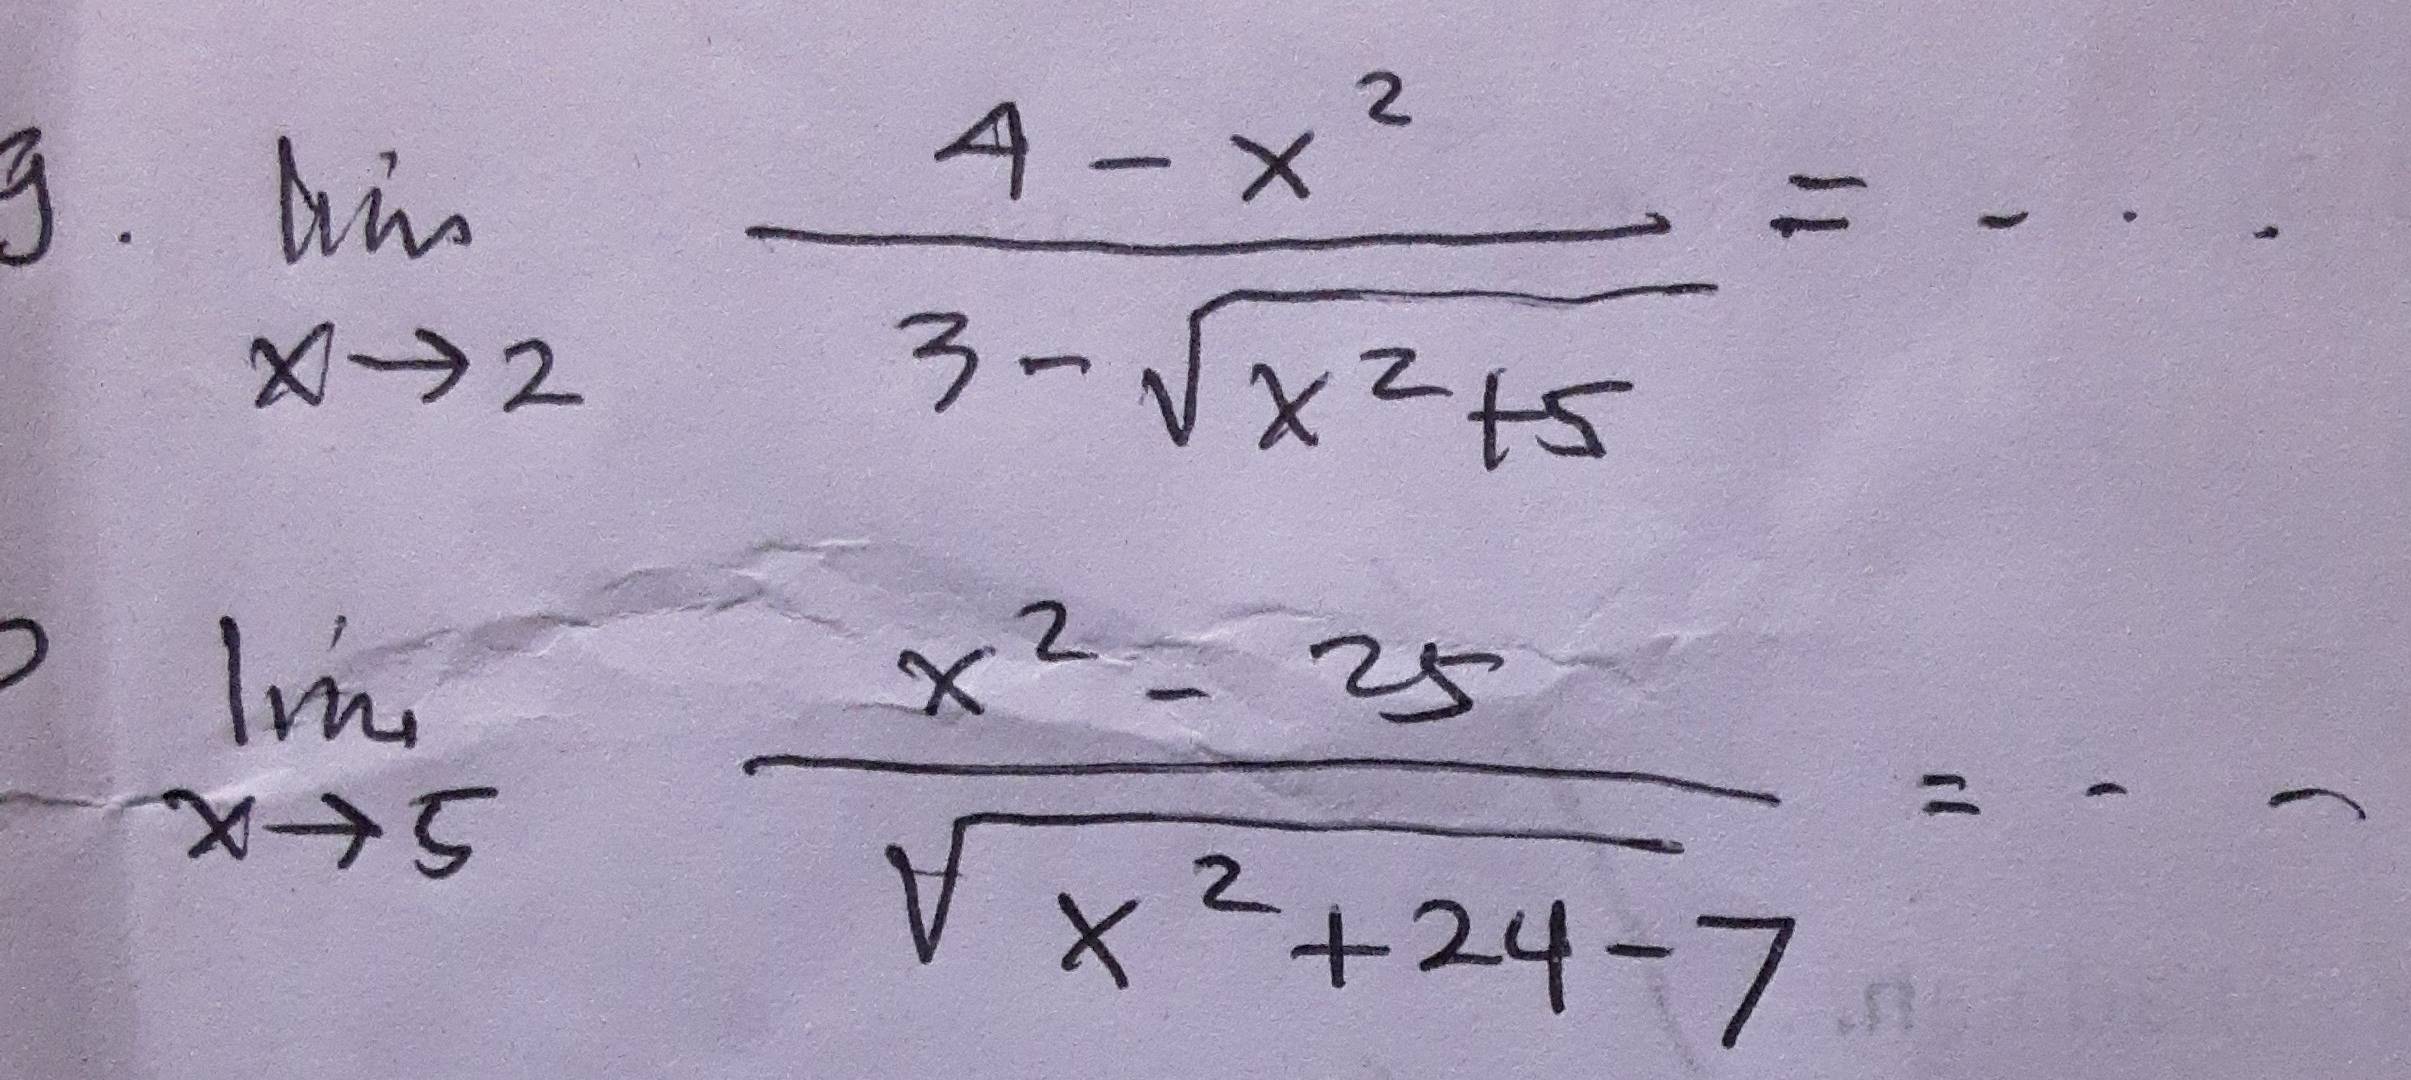 9. lim x→2 (4 - x²) / (3 - √(x² + 5)) = - . .
lim x→5 (x² - 25) / (√(x² + 24) - 7) = - -